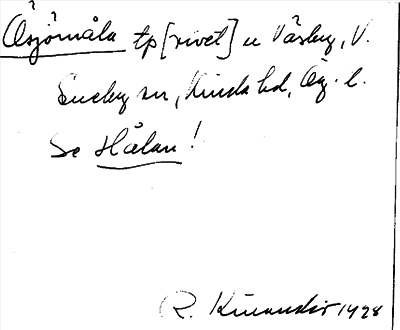 Åsjömåla tp[rivet] u Våsby, V.
Eneby sn, Kinda hd, Ög. l.
Se Hålan!
R. Kinander 1928